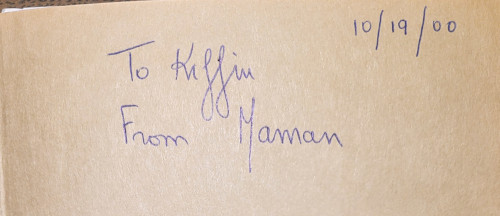 10/19/00
To Kiffin
From Maman